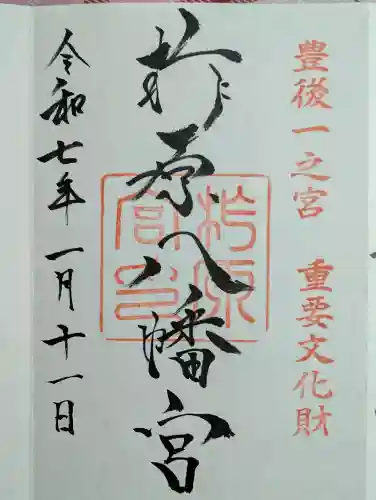 豊後一之宮 重要文化財
柞原八幡宮
令和七年一月十一日